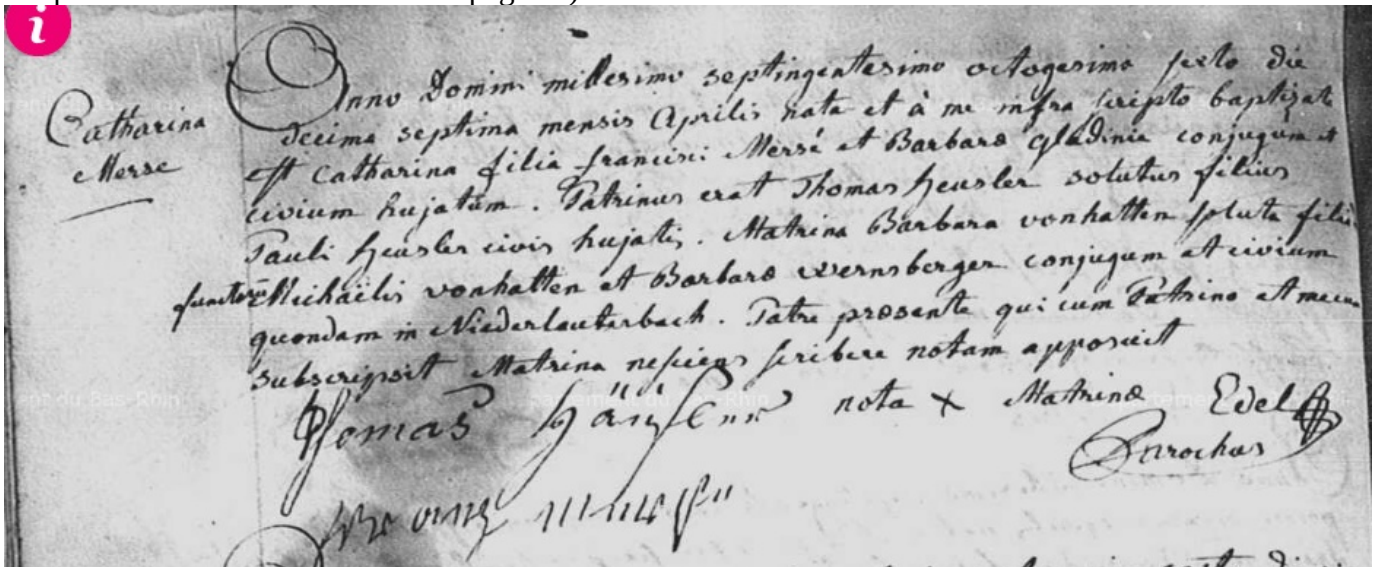 Catharina
Merse
Anno Domini millesimo septingentesimo octogesimo sexto die
decima septima mensis Aprilis nata et à me infra scripto baptizata
est Catharina filia francisci Mersé et Barbara Glädinie conjugum et
civium hujatum. Patrinus erat Thomas heusler solutus filius
Pauli heusler civis hujatis. Matrina Barbara vonhatten soluta filia
functorum Michaëlis vonhatten et Barbara wernsberger conjugum et civium
quondam in Niederlauterbach. Patre præsente qui cum Patrino et mecum
subscripsit Matrina nesciens scribere notam apposuit
Thomas nota x Matrinæ Edel
Parochus